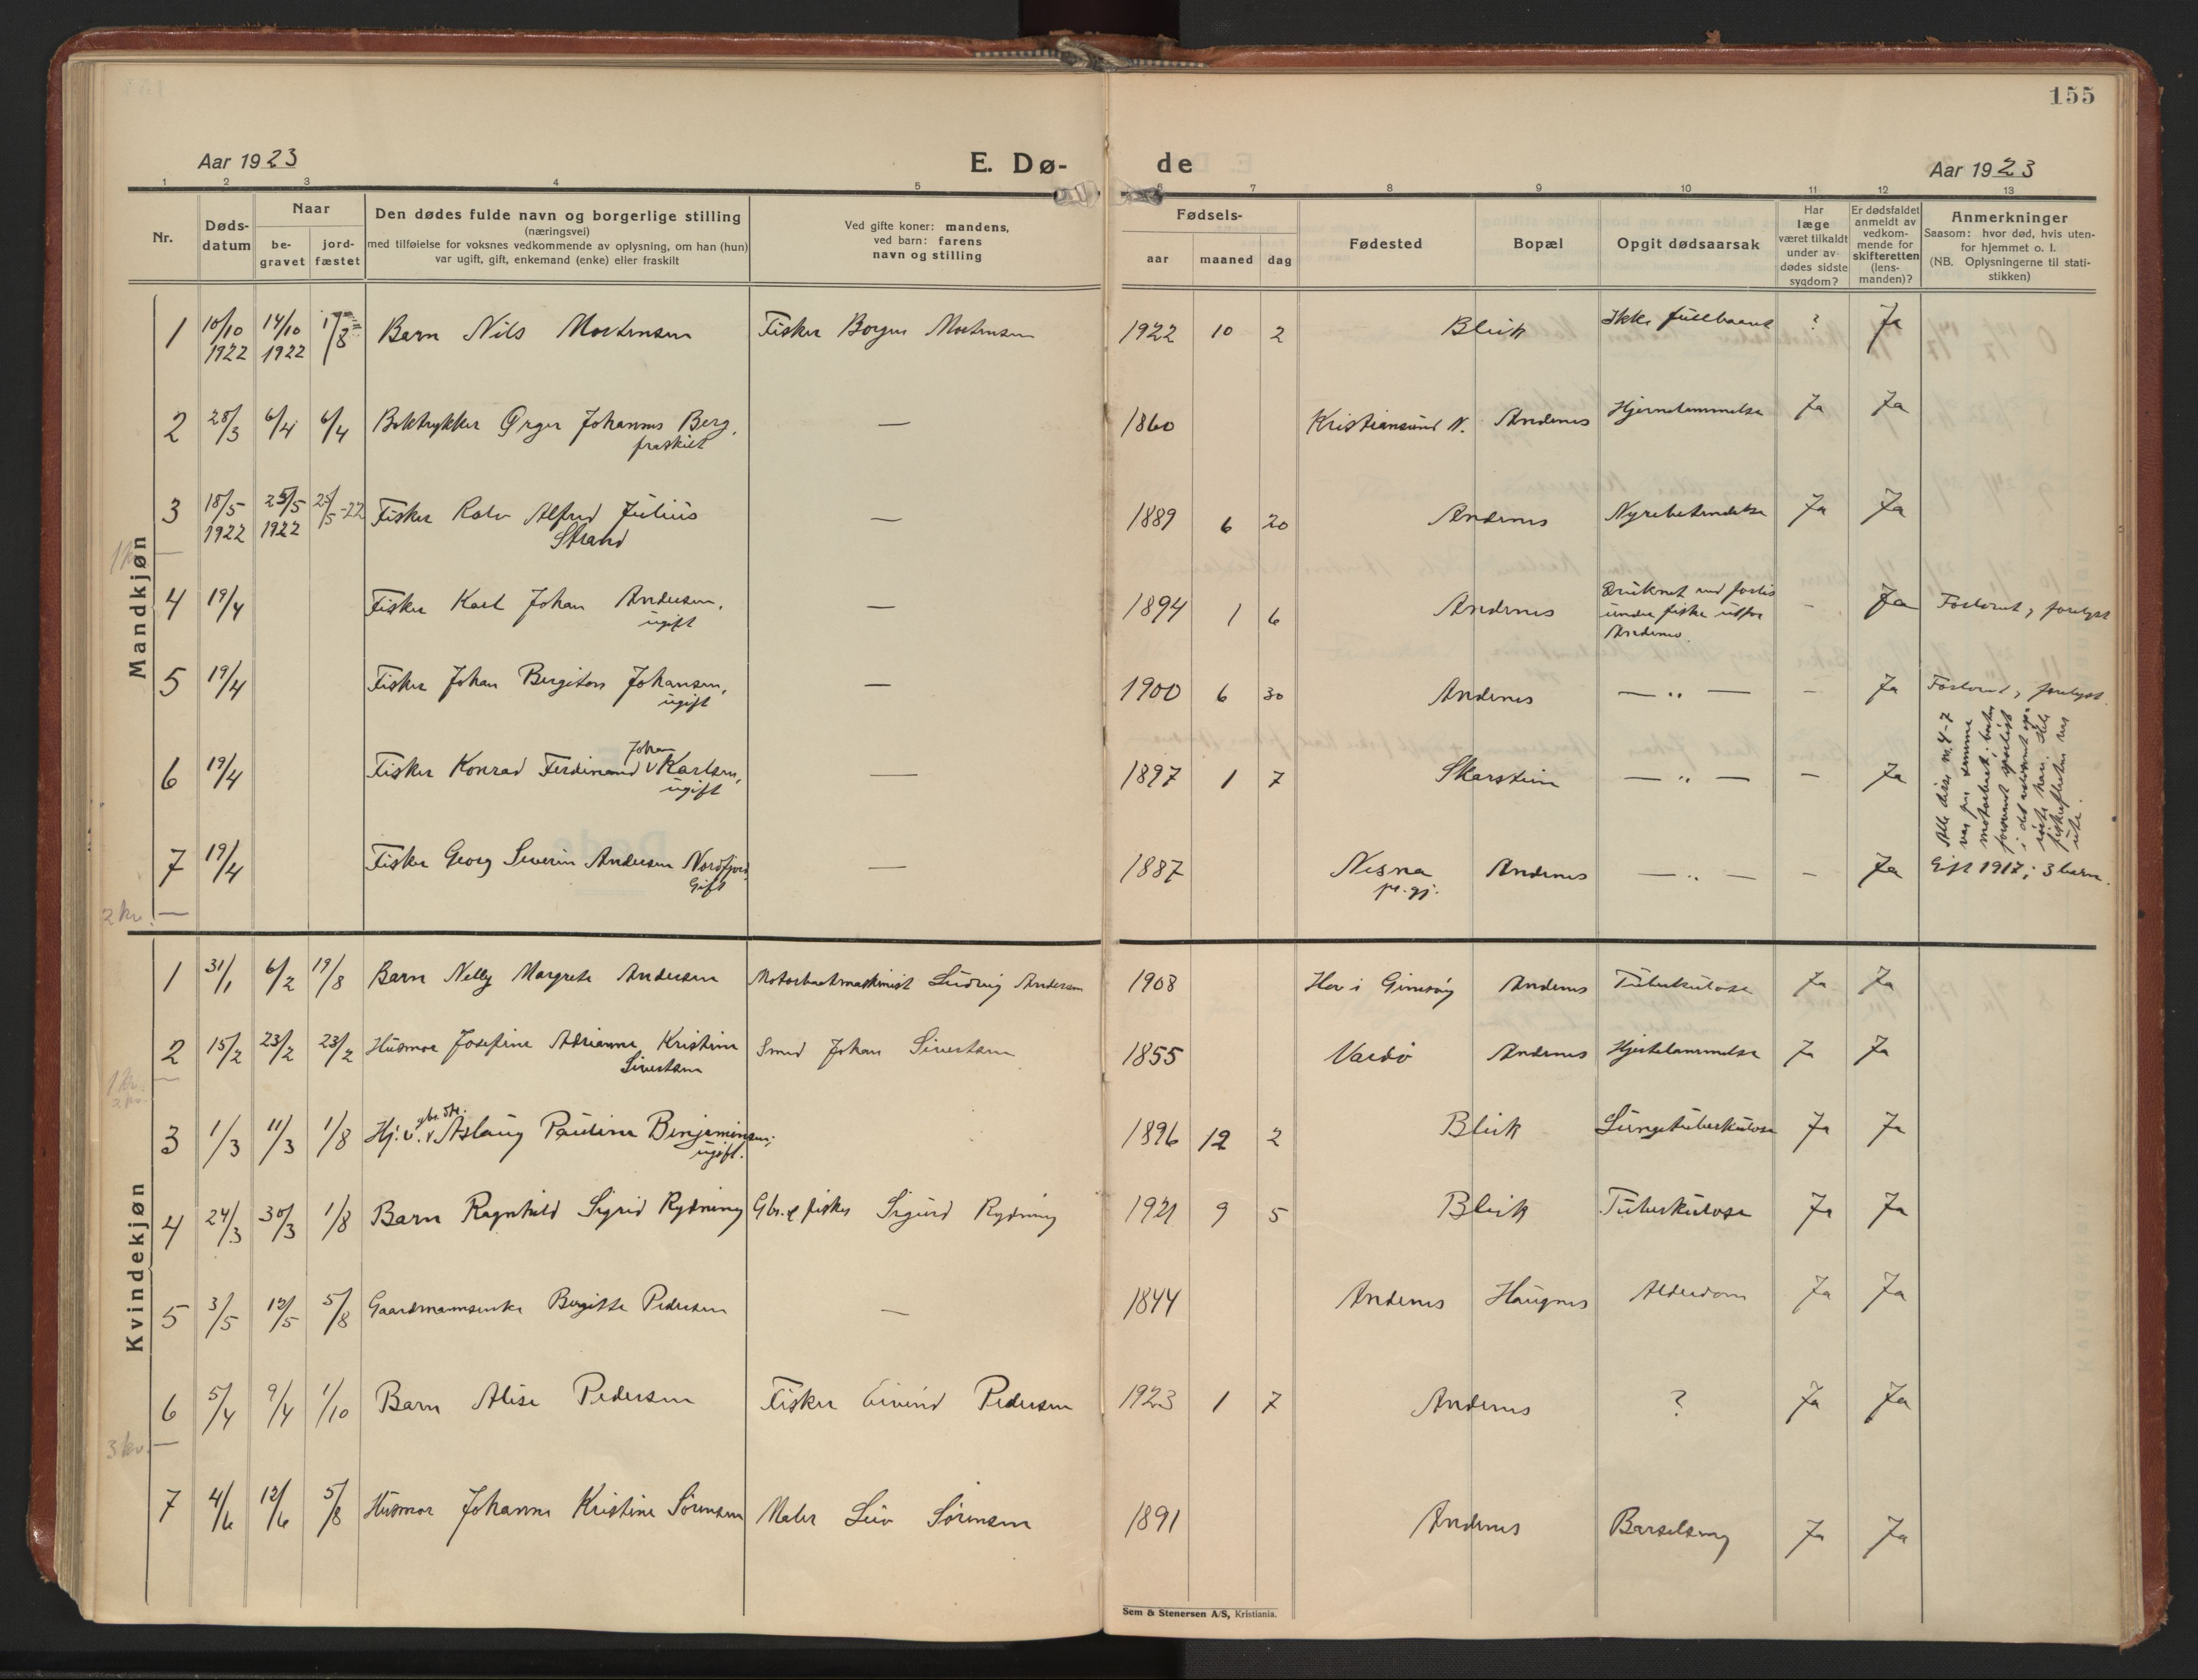 155
Aar 1923
E. Dø-
de
Aar 1923
1 2 3 4 5 6 7 8 9 10 11 12 13
Nr.
Døds-
datum
Naar
be-
gravet
jord-
fæstet
Den dødes fulde navn og borgerlige stilling
(næringsvei)
med tilføielse for voksnes vedkommende av oplysning, om han (hun)
var ugift, gift, enkemand (enke) eller fraskilt
Ved gifte koner: mandens,
ved barn: farens
navn og stilling
Fødsels-
aar maaned dag
Fødested
Bopæl
Opgit dødsaarsak
Har
læge
været tilkaldt
under av-
dødes sidste
sygdom?
Er dødsfaldet
anmeldt av
vedkom-
mende for
skifteretten
(lens-
manden)?
Anmerkninger
Saasom: hvor død, hvis uten-
for hjemmet o. l.
(NB. Oplysningerne til stati-
stikken)
Mandkjøn
1 10/10 1922 14/10 1922 Barn Nils Mortensen Fisker Borger Mortensen 1922 10 2 Bleik Ikke fuldbaaret ? Ja
2 28/3 6/4 6/4 Boktrykker Ørger Johannes Berg, fraskilt — 1860 Kristiansund N. Andenes Hjernelammelse Ja Ja
3 18/5 1922 25/5 1922 25/5-22 Fisker Rolv Alfred Julius Strand — 1889 6 20 Andenes Nyrebetendelse Ja Ja
4 19/4 Fisker Karl Johan Andersen, ugift — 1894 1 6 Andenes Druknet ved forlis under fiske utfor Andenes. - Ja Forlovet, forlyst
5 19/4 Fisker Johan Bergiton Johansen, ugift — 1900 6 30 Andenes — " — - Ja Forlovet, forlyst.
6 19/4 Fisker Konrad Ferdinand Johan Karlsen, ugift — 1897 1 7 Skarstein — " — - Ja
Alle disse nr. 4-7
var paa samme
motorbaat
7 19/4 Fisker Georg Severin Andersen Nordfjord, Gift — 1887 Nesna pr.gj. Andenes — " — - Ja Gift 1917; 3 barn.
2 kv. —
Kvindekjøn
1 31/1 6/2 19/8 Barn Nelly Margrete Andersen Motorbaatmaskinist Ludvig Andersen 1908 Hov i Gimsøy Andenes Tuberkulose Ja Ja
2 15/2 23/2 23/2 Husmor Josefine Adrianne Kristine Sivertsen Smed Johan Sivertsen 1855 Vardø Andenes Hjertelammelse Ja Ja
3 1/3 11/3 1/8 Hj. v. gbr. dtr. Aslaug Pauline Benjaminsen, ugift. 1896 12 2 Bleik Lungetuberkulose Ja Ja
4 24/3 30/3 1/8 Barn Ragnhild Sigrid Rydning Gbr. & fisker Sigurd Rydning 1921 9 5 Bleik Tuberkulose Ja Ja
5 3/5 12/5 5/8 Gaardmannsenke Bergitte Pedersen — 1844 Andenes Haugnes Alderdom Ja Ja
6 5/4 9/4 1/10 Barn Alise Pedersen Fisker Eivind Pedersen 1923 1 7 Andenes ? Ja Ja
3 kv. —
7 4/6 12/6 5/8 Husmor Johanne Kristine Sørensen Maler Sørensen 1891 Andenes Barselseng Ja Ja
Sem & Stenersen A/S, Kristiania.